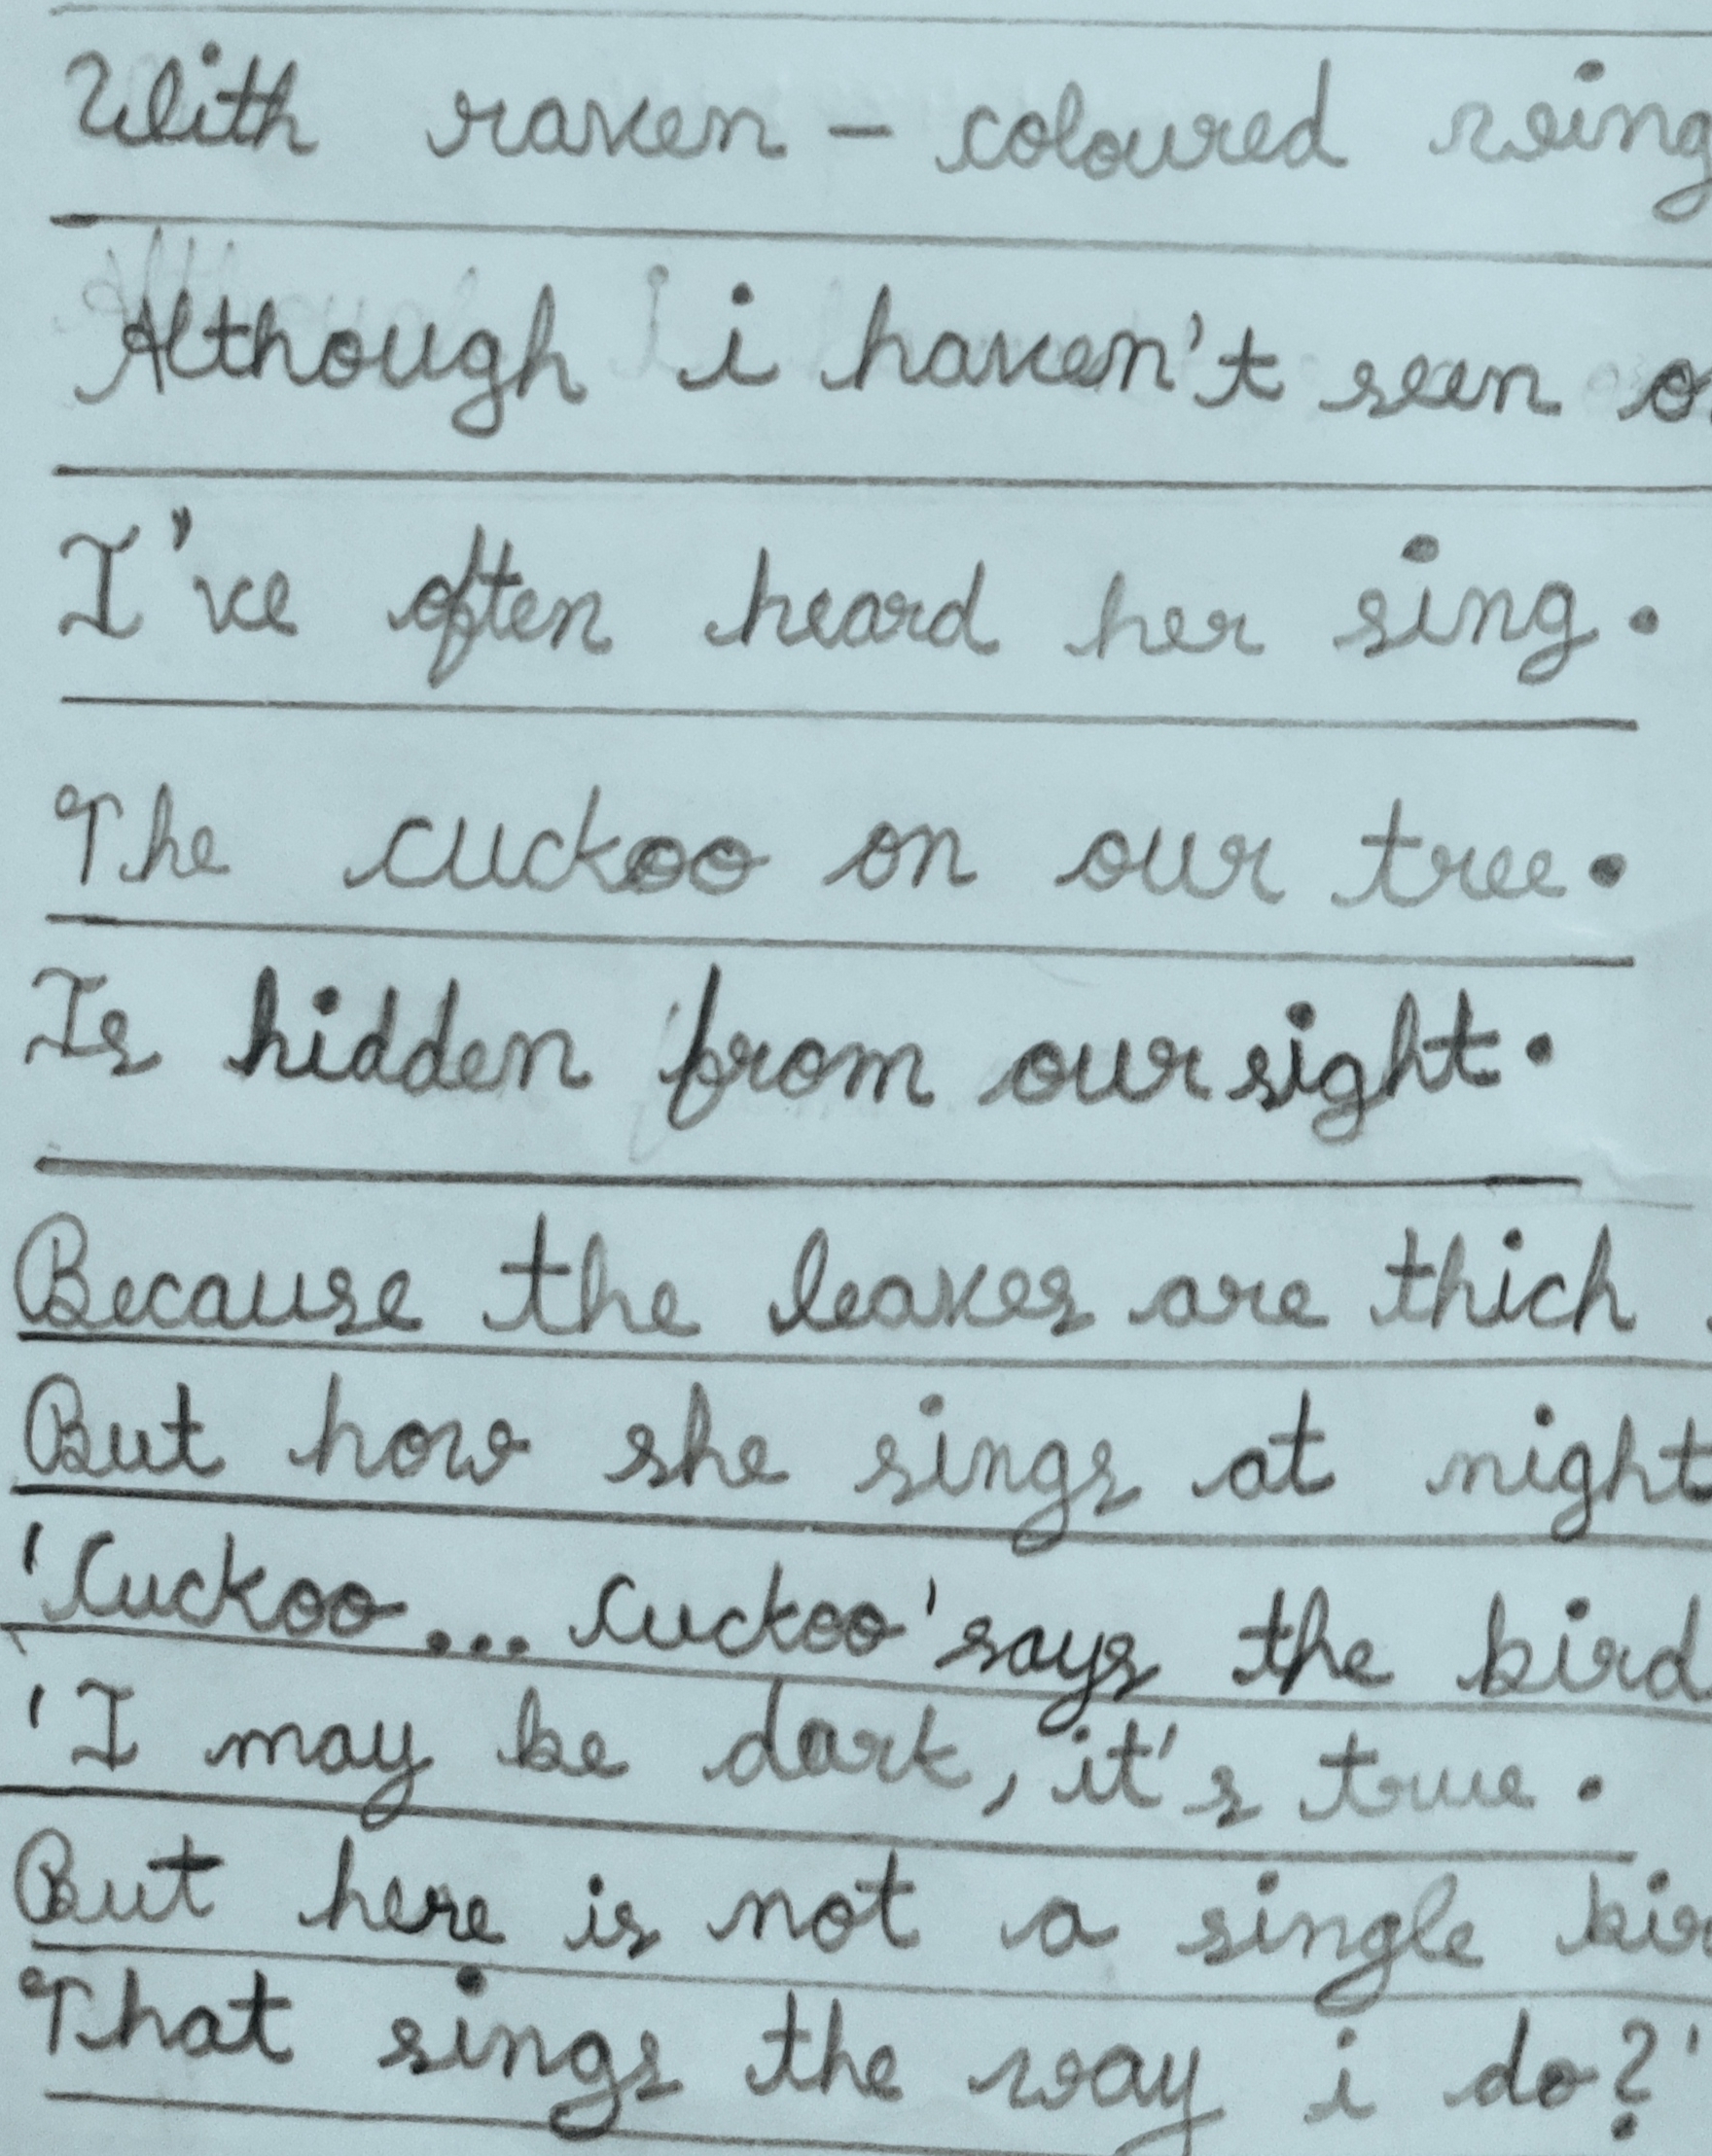 With raven - coloured wing
Although i haven't seen
I've often heard her sing.
The cuckoo on our tree.
Is hidden from our sight.
Because the leaves are thich .
But how she sings at night
'Cuckoo... Cuckoo' says the bird
'I may be dark, it's true.
But here is not a single
That sings the way i do?'